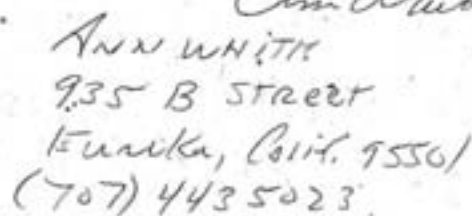 ANN WHITE
935 B STREET
Eureka, Calif. 95501
(707) 443 5023